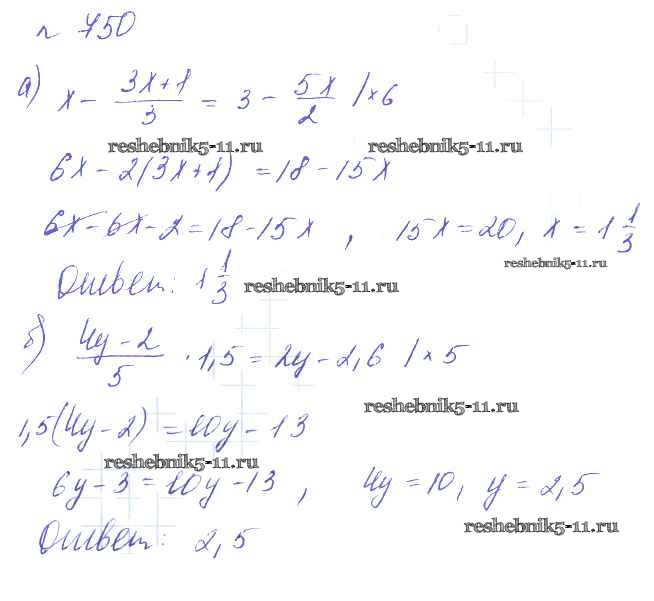 № 750
а) x - (3x+1)/3 = 3 - 5x/2 /×6
reshebnik5-11.ru reshebnik5-11.ru
6x - 2(3x+1) = 18 - 15x
6x - 6x - 2 = 18 - 15x , 15x = 20, x = 1 1/3
reshebnik5-11.ru
Ответ: 1 1/3 reshebnik5-11.ru
б) (4y-2)/5 · 1,5 = 2y - 2,6 /×5
reshebnik5-11.ru
1,5(4y-2) = 10y - 13
reshebnik5-11.ru
6y - 3 = 10y - 13 , 4y = 10, y = 2,5
reshebnik5-11.ru
Ответ: 2,5